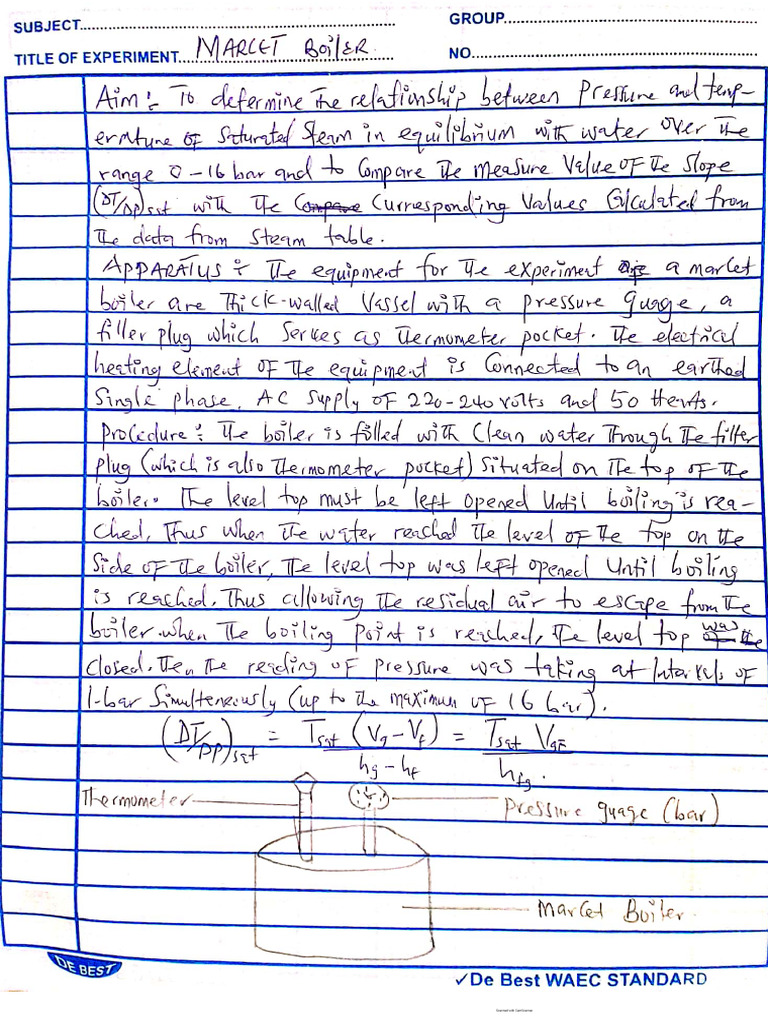 SUBJECT........ GROUP........
TITLE OF EXPERIMENT.... MARCET BOILER. NO........
Aim:- To determine The relationship between Pressure and temp-
erature of Saturated Steam in equilibrium with water over the
range 0-16 bar and to Compare the measure Value of the Slope
(DT/DP)sat with the Compare Curresponding Values Calculated from
The data from steam table.
APPARATUS:- The equipment for the experiment a market
boiler are Thick-walled Vessel with a pressure guage, a
filler plug which Serves as Thermometer pocket. The electrical
heating element of the equipment is Connected to an earthed
Single phase, AC Supply of 220-240 volts and 50 Hertz.
Procedure:- The boiler is filled with Clean water Through The filler
plug (which is also Thermometer pocket) Situated on The top of the
boiler. The level top must be left opened Until boiling is rea-
ched, Thus when The water reached The level of The top on the
Side of The boiler, The level top was left opened Until boiling
is reached. Thus allowing The residual air to escape from The
boiler when The boiling Point is reached, The level top was
closed. Then The reading of pressure was taking at Intervals of
1-bar Simulteneously (up to the maximum of 16 bar).
(DT/DP)sat = Tsat (Vg-Vf) / hg-hf = Tsat Vgf / hfg.
Thermometer
Pressure guage (bar)
Marcet Boiler.
DE BEST
✓De Best WAEC STANDARD